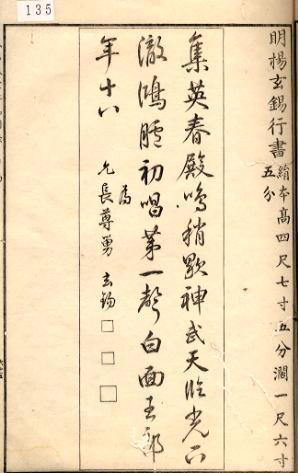 135
明楊玄錫行書
絹本高四尺七寸五分濶一尺六寸
五分
集英春殿鳴梢歇神武天臨光下
澈鴻臚初唱第一聲白面玉郎
年十八
為
允長尊勇 玄錫 □ □ □